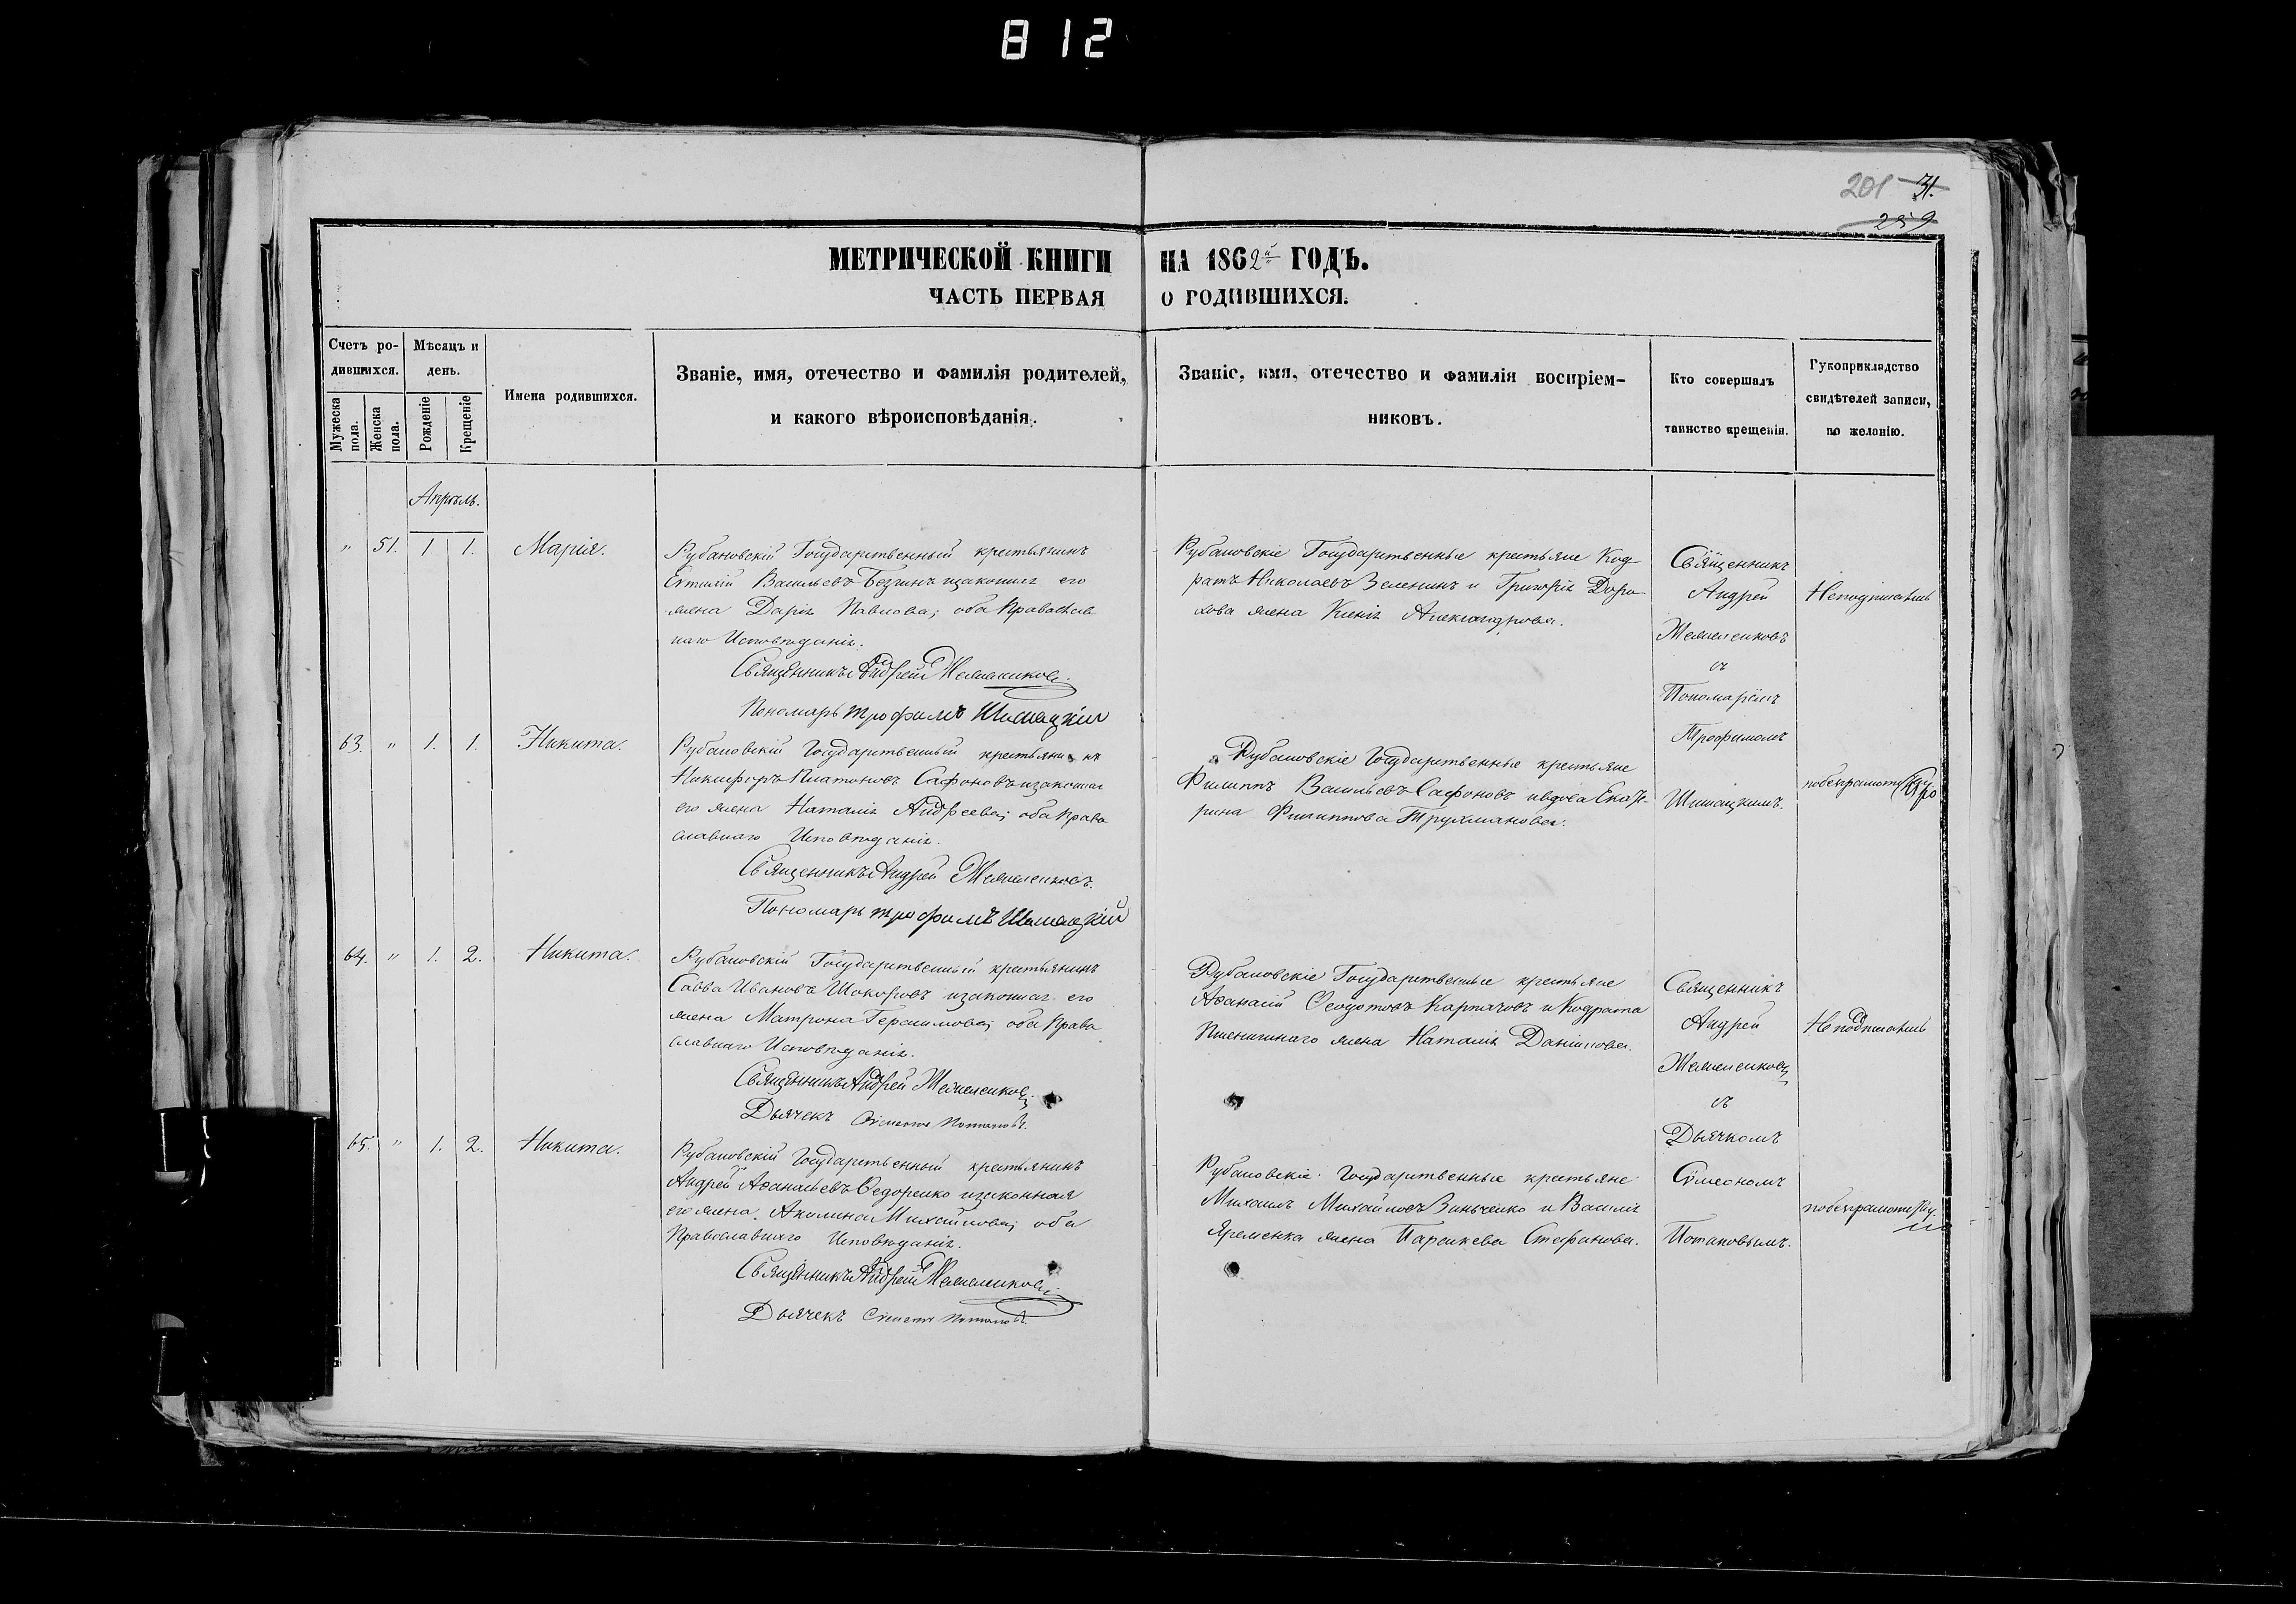 812
201 31.
259
МЕТРИЧЕСКОЙ КНИГИ НА 1862й ГОДЪ.
ЧАСТЬ ПЕРВАЯ О РОДИВШИХСЯ.
Счетъ ро-
дившихся.
Мужеска пола.
Женска пола.
Мѣсяцъ и
день.
Рожденіе
Крещеніе
Имена родившихся.
Званіе, имя, отечество и фамилія родителей,
и какого вѣроисповѣданія.
Званіе, имя, отечество и фамилія воспріем-
никовъ.
Кто совершалъ
таинство крещенія.
Рукоприкладство
свидѣтелей записи,
по желанію.
Апрѣль.
" 51. 1. 1. Марія.
Рубановскій Государственный крестьянинъ
Васильевъ изаконная его
жена Дарія Павлова; оба Православ
наго Исповѣданія.
Священникъ Андрей
Пономарь Трофимъ Шишацкій
Рубановскіе Государственные крестьяне Код-
ратъ Николаевъ Зеленинъ и Григорія Доро
хова жена Ксенія Александрова.
Священникъ
Андрей
съ
Пономарёмъ
Трофимомъ
Шишацкимъ.
Неподписались
63. " 1. 1. Никита.
Рубановскій Государственный крестьянинъ
Никифоръ Платоновъ Сафоновъ изаконная
его жена Наталія Андреева; оба Право
славнаго Исповѣданія.
Священникъ Андрей
Пономарь Трофимъ Шишацкій
Рубановскіе Государственные крестьяне
Филиппъ Васильевъ Сафоновъ ивдова Екате-
рина Филиппова Трухманова.
64. " 1. 2. Никита.
Рубановскій Государственный крестьянинъ
Савва Ивановъ изаконная его
жена Матрона Герасимова; оба Право
славнаго Исповѣданія.
Священникъ Андрей
Дьячекъ Симеонъ Потаповъ.
Рубановскіе Государственные крестьяне
Аѳанасій Ѳеодотовъ Карпачовъ и Кодрата
Пшеничнаго жена Наталія Даніилова.
Священникъ
Андрей
съ
Дьячкомъ
Симеономъ
Потаповымъ.
Неподписались
65. " 1. 2. Никита.
Рубановскій Государственный крестьянинъ
Андрей Аѳанасьевъ Ѳедоренко изаконная
его жена Акилина Михайлова; оба
Православнаго Исповѣданія.
Священникъ Андрей
Дьячекъ Симеонъ Потаповъ.
Рубановскіе Государственные крестьяне
Михаилъ Михайловъ Зинченко и Василія
Яременка жена Параскева Стефанова.